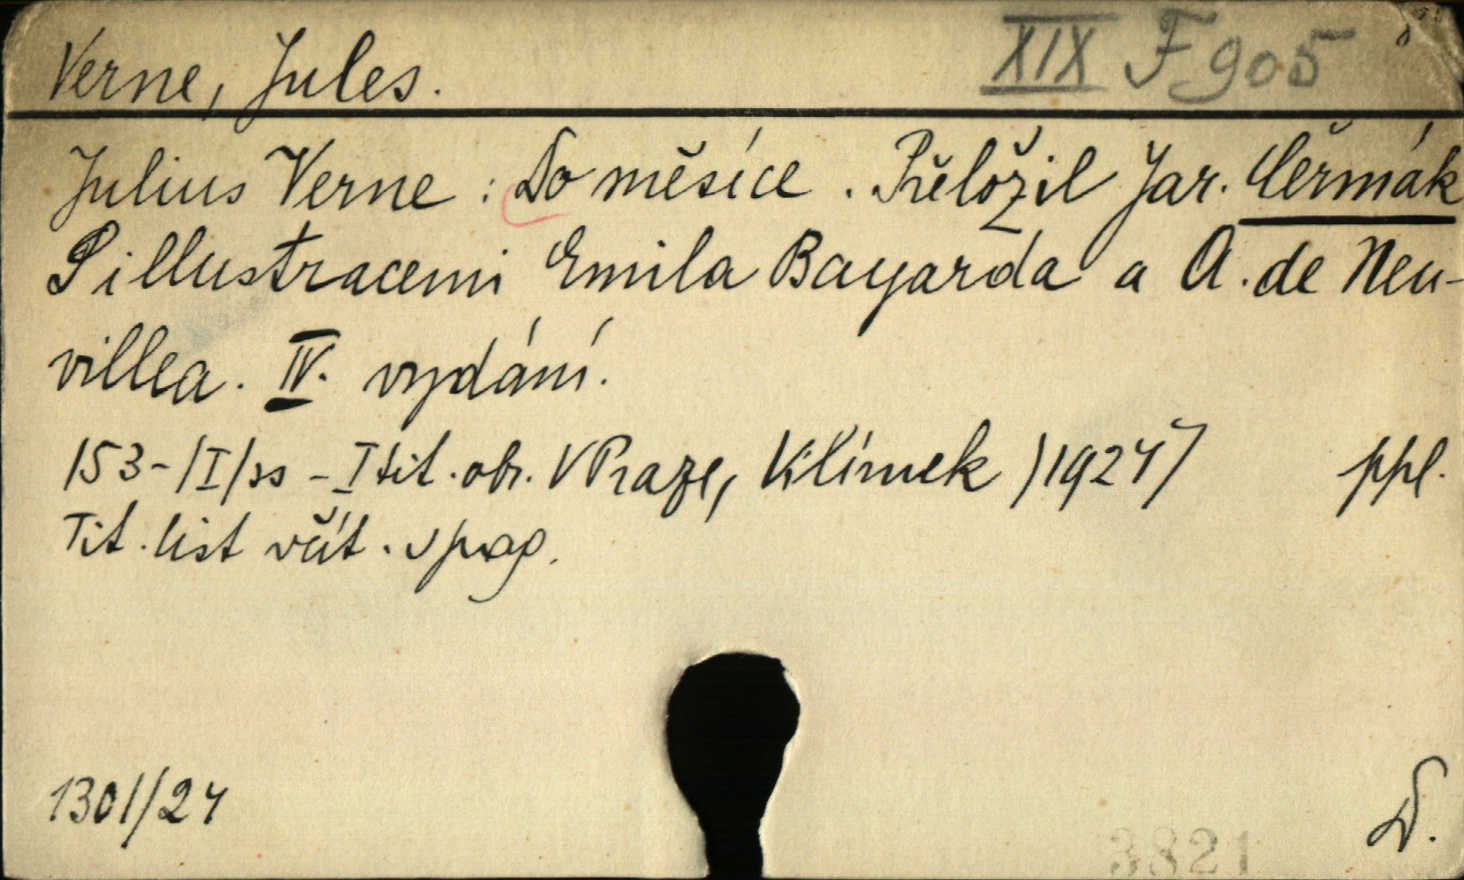 Verne, Jules. XIX F 905
Julius Verne: Do měsíce. Přeložil Jar. Čermák
S illustracemi Emila Bayarda a A. de Neu-
villea. IV. vydání.
153-/I/ss - I tit. obr. V Praze, Vilímek /1924/ ppl.
Tit. list včít. v pag.
1301/24 D.
3821